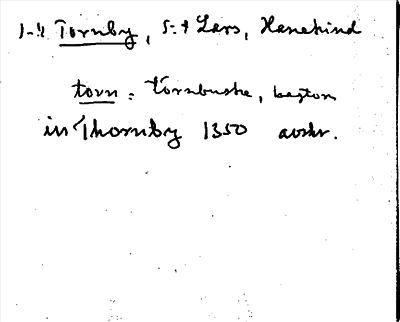 1-4 Tornby, S:t Lars, Hanekind
torn = törnbuske, hagtorn
in Thornby 1350 avskr.